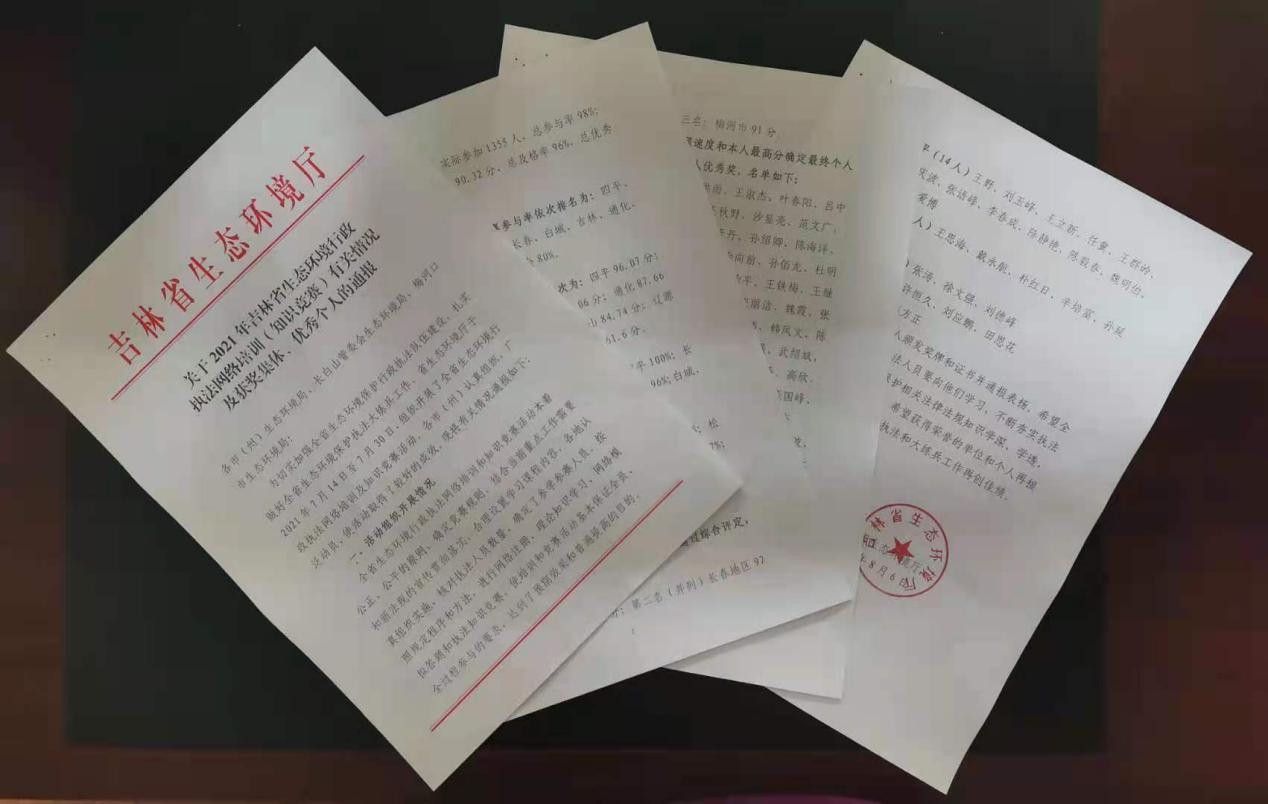 吉林省生态环境厅
关于2021年吉林省生态环境行政
执法网络培训（知识竞赛）有关情况
及获奖集体、优秀个人的通报
各市（州）生态环境局、长白山管委会生态环境局，梅河口
市生态环境局：
为切实加强全省生态环境保护行政执法队伍建设，扎实
做好全省生态环境保护执法大练兵工作，省生态环境厅于
2021年7月14日至7月30日，组织开展了全省生态环境行
政执法网络培训及知识竞赛活动。各市（州）认真组织，广
泛动员，使活动取得了较好的成效，现将有关情况通报如下：
一、活动组织开展情况
全省生态环境行政执法网络培训和知识竞赛活动本着
公正、公平的原则，确定竞赛规则，结合当前重点工作需要
和新法规的宣传贯彻落实，合理设置学习课程内容，各地认
真组织实施，核对执法人员数量，确定了参学参赛人员，按
照规定程序和方法，进行网络注册，理论知识学习，网络模
拟答题和执法知识竞赛，使培训和竞赛活动基本保证全员、
全过程参与的要求，达到了预期效果和普遍提高的目的。
实际参加1355人，总参与率98%；
90.32分，总及格率96%，总优秀
参与率依次排名为：四平、
长春、白城、吉林、通化、
80%。
次为：四平96.07分；
06分；通化87.66
山84.74分；辽源
61.6分。
平100%；长
96%；白城、
；松
7%；
综合评定，
分；第二名（并列）长春地区92
三名：梅河市91分
速度和本人最高分确定最终个人
人优秀奖，名单如下：
雨、王淑杰、叶春阳、吕中
秋野、沙显亮、范文广、
丹、孙绍卿、陈海洋、
向前、孙佰龙、杜明
平、王铁梅、王继
丽洁、魏霞、张
、韩凤文、陈
、武绍斌、
、高欣、
国峰、
（14人）王野、刘玉峰、王立新、任重、王群的、
波、张诘峰、李春成、陈静艳、陈毅春、魏明怡、
爱博
人）王思海、戴永航、朴红日、辛培富、孙延
）张涛、徐文强、刘德峰
许恒久、刘应鹏、田恩花
方正
人颁发奖牌和证书并通报表扬，希望全
法人员要向他们学习，不断夯实执法
保护相关法律法规知识学深、学透，
希望获得荣誉的单位和个人再接
执法和大练兵工作再创佳绩。
林省生态环境厅
年8月6日